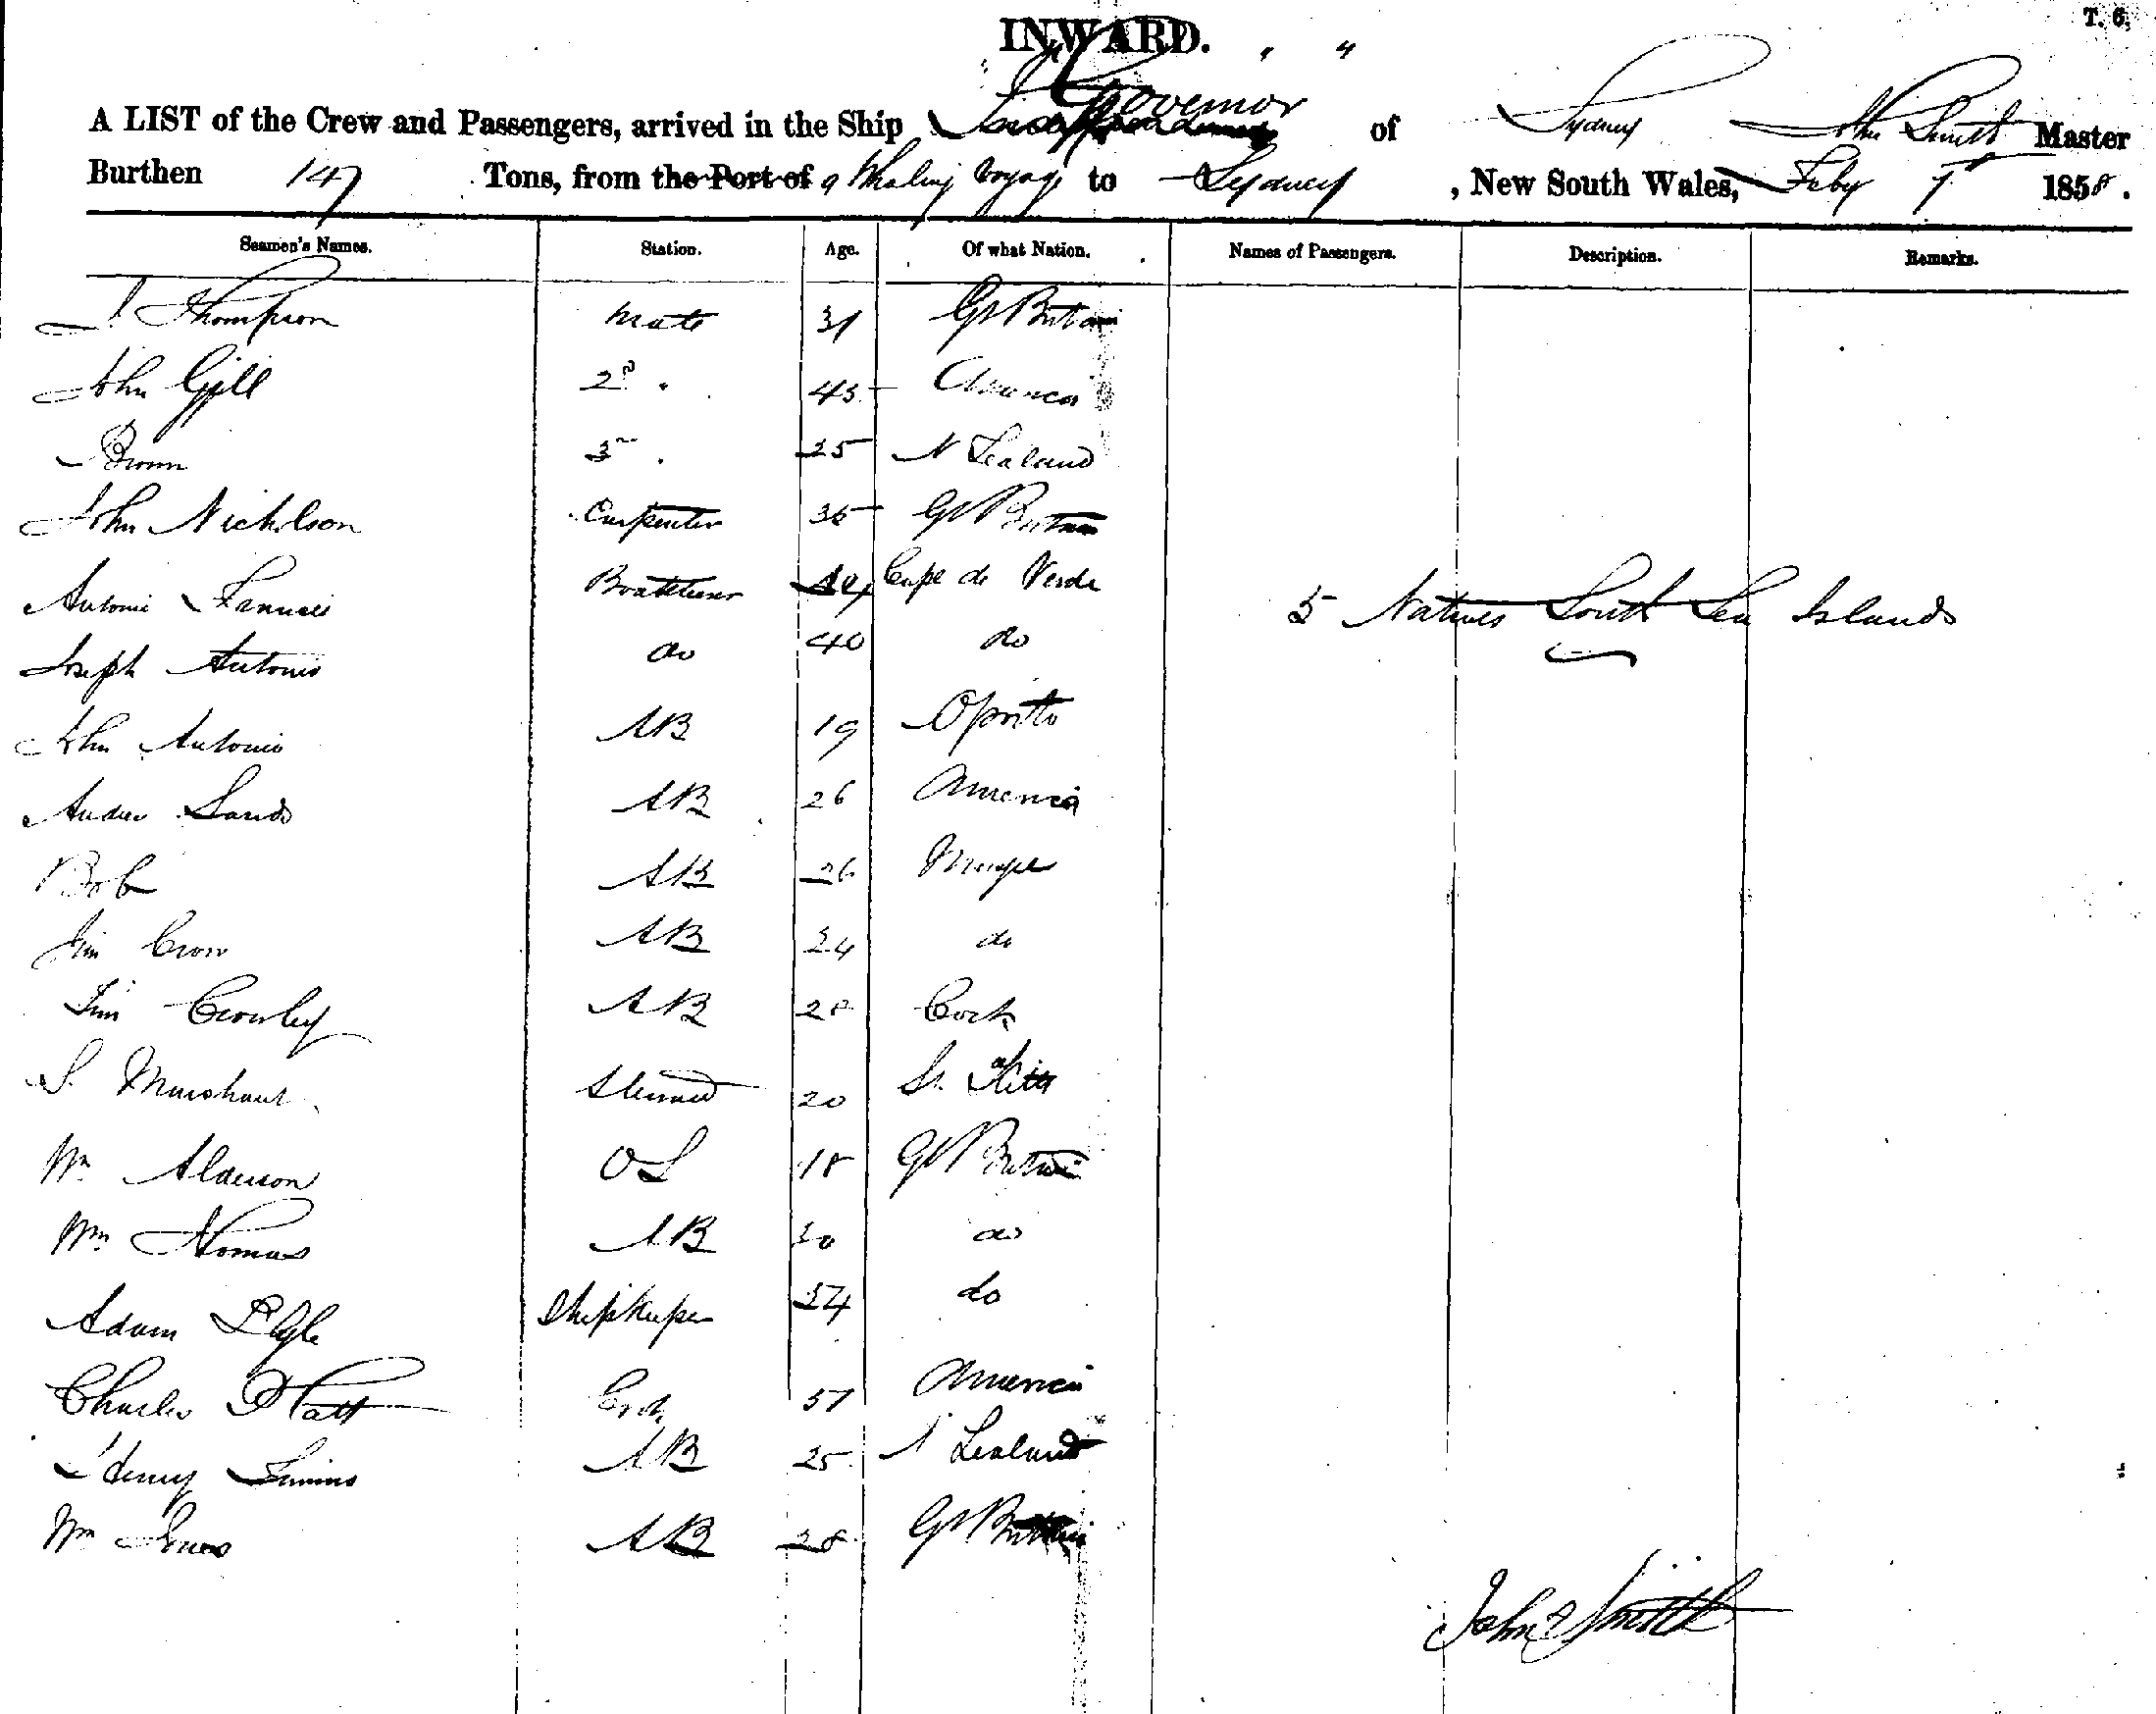 INWARD.
T. 6.
A LIST of the Crew and Passengers, arrived in the Ship Governor of Sydney John Smith Master
Burthen 147 Tons, from the Port of a Whaling Voyage to Sydney, New South Wales, Feby 1858.
Seamen's Names. Station. Age. Of what Nation. Names of Passengers. Description. Remarks.
J. Thompson Mate 31 Gt Britain
John Gill 2d " 45 America
Brown 3rd " 25 N Zealand
John Nicholson Carpenter 35 Gt Britain
Antonio Boatsteerer Cape de Verde
5 Natives South Sea Islands
Joseph Antonio do 40 do
John Antonio AB 19 Oporto
Andrew Sands AB 26 America
Bob AB 26
Jim Crow AB 24 do
Tim Crowley AB 28 Cork
S. Steward 20 St Kitts
Wm Alderson OS 18 Gt Britain
Wm Thomas AB 30 do
Adam Shipkeeper 34 do
Charles Platt Cook 51 America
Henry Simms AB 25 N Zealand
Wm Jones AB 28 Gt Britain
John Smith